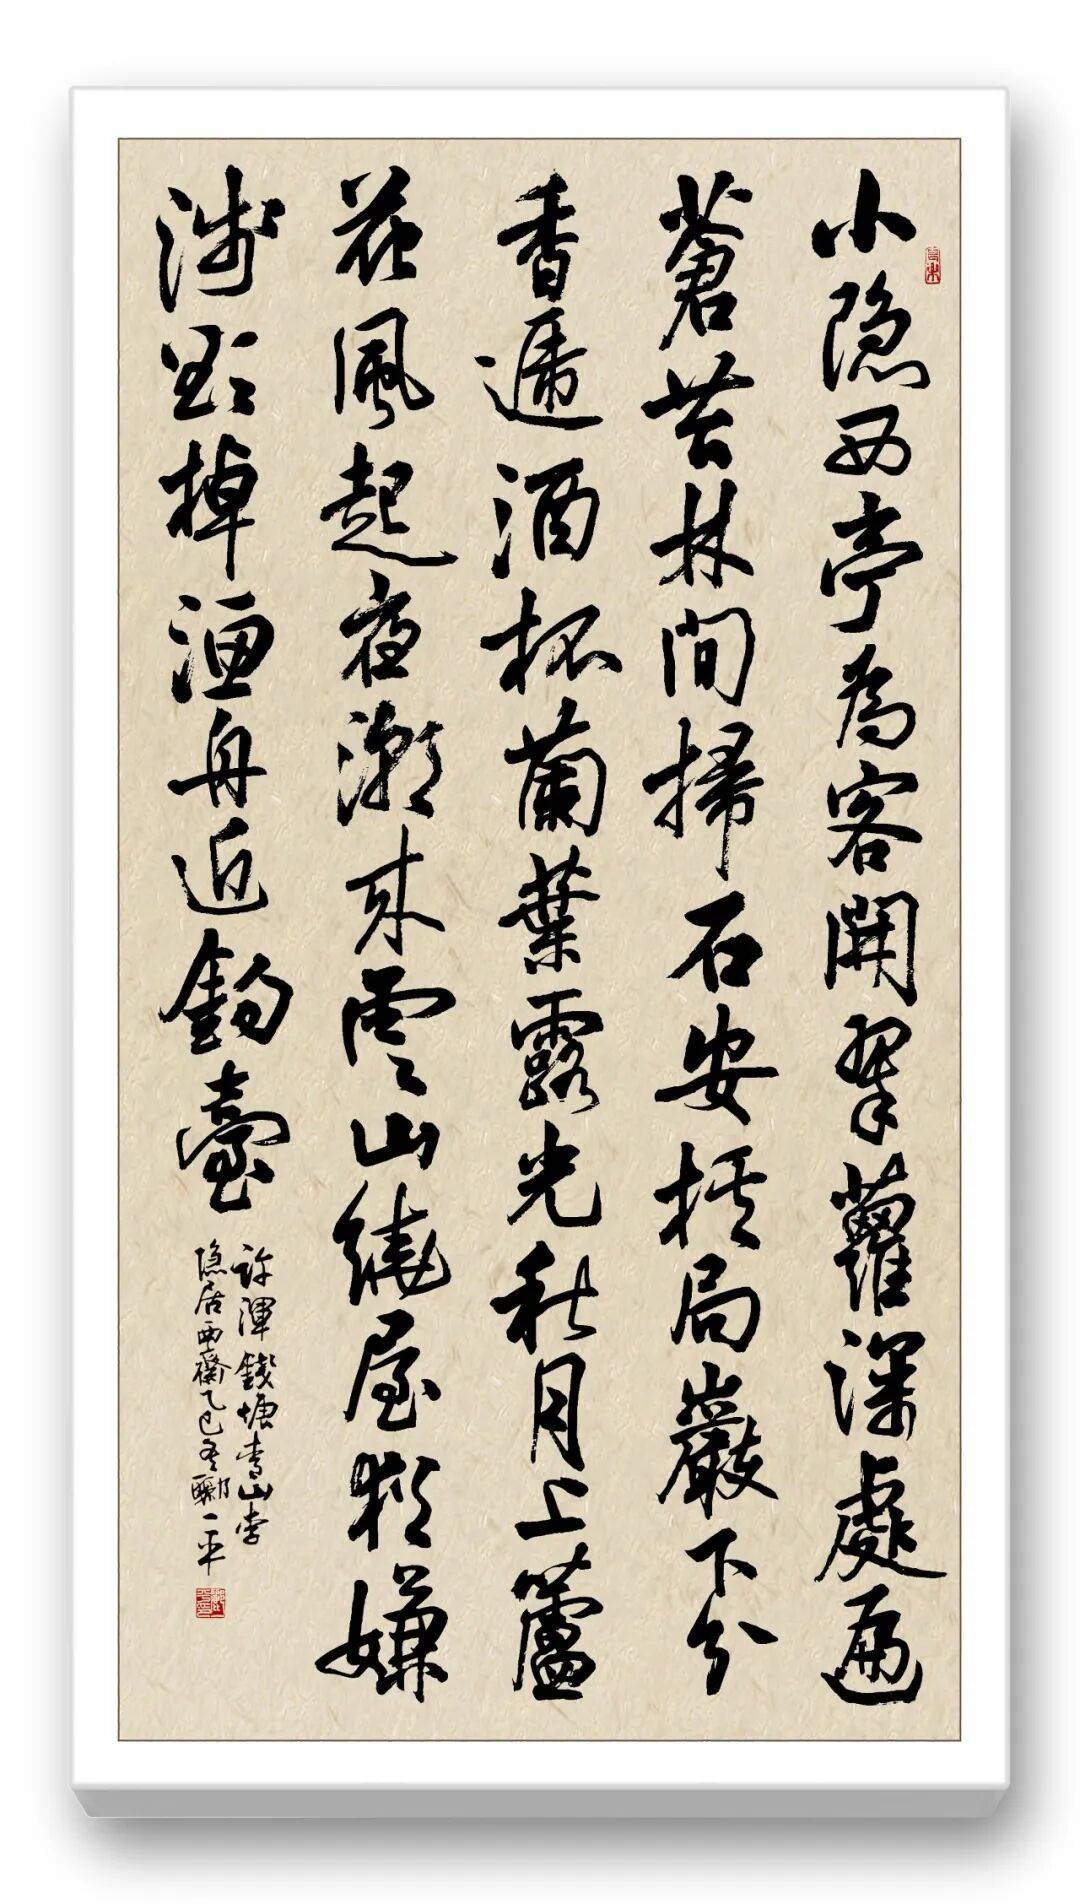 小隐西亭為客開翠蘿深處遍
蒼苔林間掃石安棋局巖下分
香遞酒杯蘭葉露光秋月上蘆
花風起夜潮來雲山繞屋猶嫌
淺欲棹漁舟近釣臺
許渾錢塘青山李
隐居西齋乙巳冬酈一平